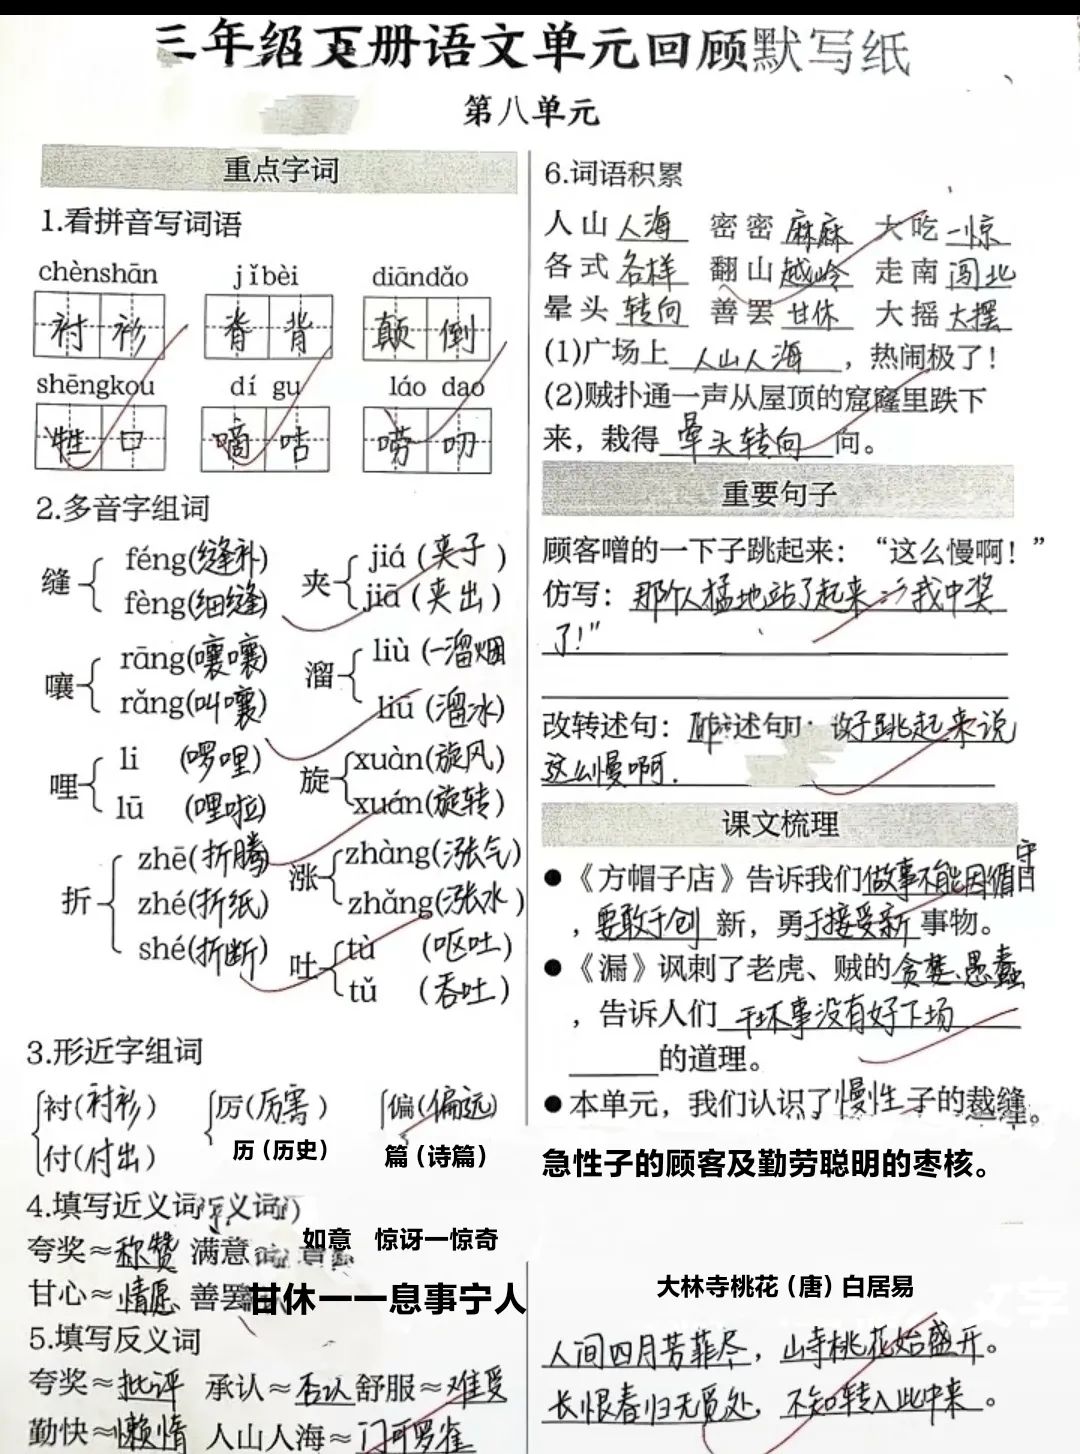 三年级下册语文单元回顾默写纸
第八单元
重点字词
1.看拼音写词语
chènshān jǐbèi diāndǎo
衬衫 脊背 颠倒
shēngkou dí gu láo dao
牲口 嘀咕 唠叨
2.多音字组词
缝 féng(缝补) 夹 jiá(夹子)
fèng(细缝) jiā(夹出)
嚷 rāng(嚷嚷) 溜 liù(一溜烟
rǎng(叫嚷) liū(溜冰)
哩 li (啰哩) 旋 xuàn(旋风)
lū (哩啦) xuán(旋转)
折 zhē(折腾) 涨 zhàng(涨气)
zhé(折纸) zhǎng(涨水)
shé(折断) 吐 tù (呕吐)
tǔ (吞吐)
3.形近字组词
衬(衬衫) 厉(厉害) 偏(偏远)
付(付出) 历(历史) 篇(诗篇)
4.填写近义词
夸奖≈称赞 满意 如意 惊讶一惊奇
甘心≈情愿 善罢甘休一一息事宁人
5.填写反义词
夸奖≈批评 承认≈否认 舒服≈难受
勤快≈懒惰 人山人海≈门可罗雀
6.词语积累
人山人海 密密麻麻 大吃一惊
各式各样 翻山越岭 走南闯北
晕头转向 善罢甘休 大摇大摆
(1)广场上人山人海，热闹极了！
(2)贼扑通一声从屋顶的窟窿里跌下
来，栽得晕头转向向。
重要句子
顾客噌的一下子跳起来：“这么慢啊！”
仿写：那个人猛地站了起来：“我中奖
了！”
改转述句：述句 跳起来说
这么慢啊.
课文梳理
●《方帽子店》告诉我们做事不能因循守旧
，要敢于创新，勇于接受新事物。
●《漏》讽刺了老虎、贼的贪婪、愚蠢
，告诉人们干坏事没有好下场
的道理。
●本单元，我们认识了慢性子的裁缝。
急性子的顾客及勤劳聪明的枣核。
大林寺桃花（唐）白居易
人间四月芳菲尽，山寺桃花始盛开。
长恨春归无觅处，不知转入此中来。